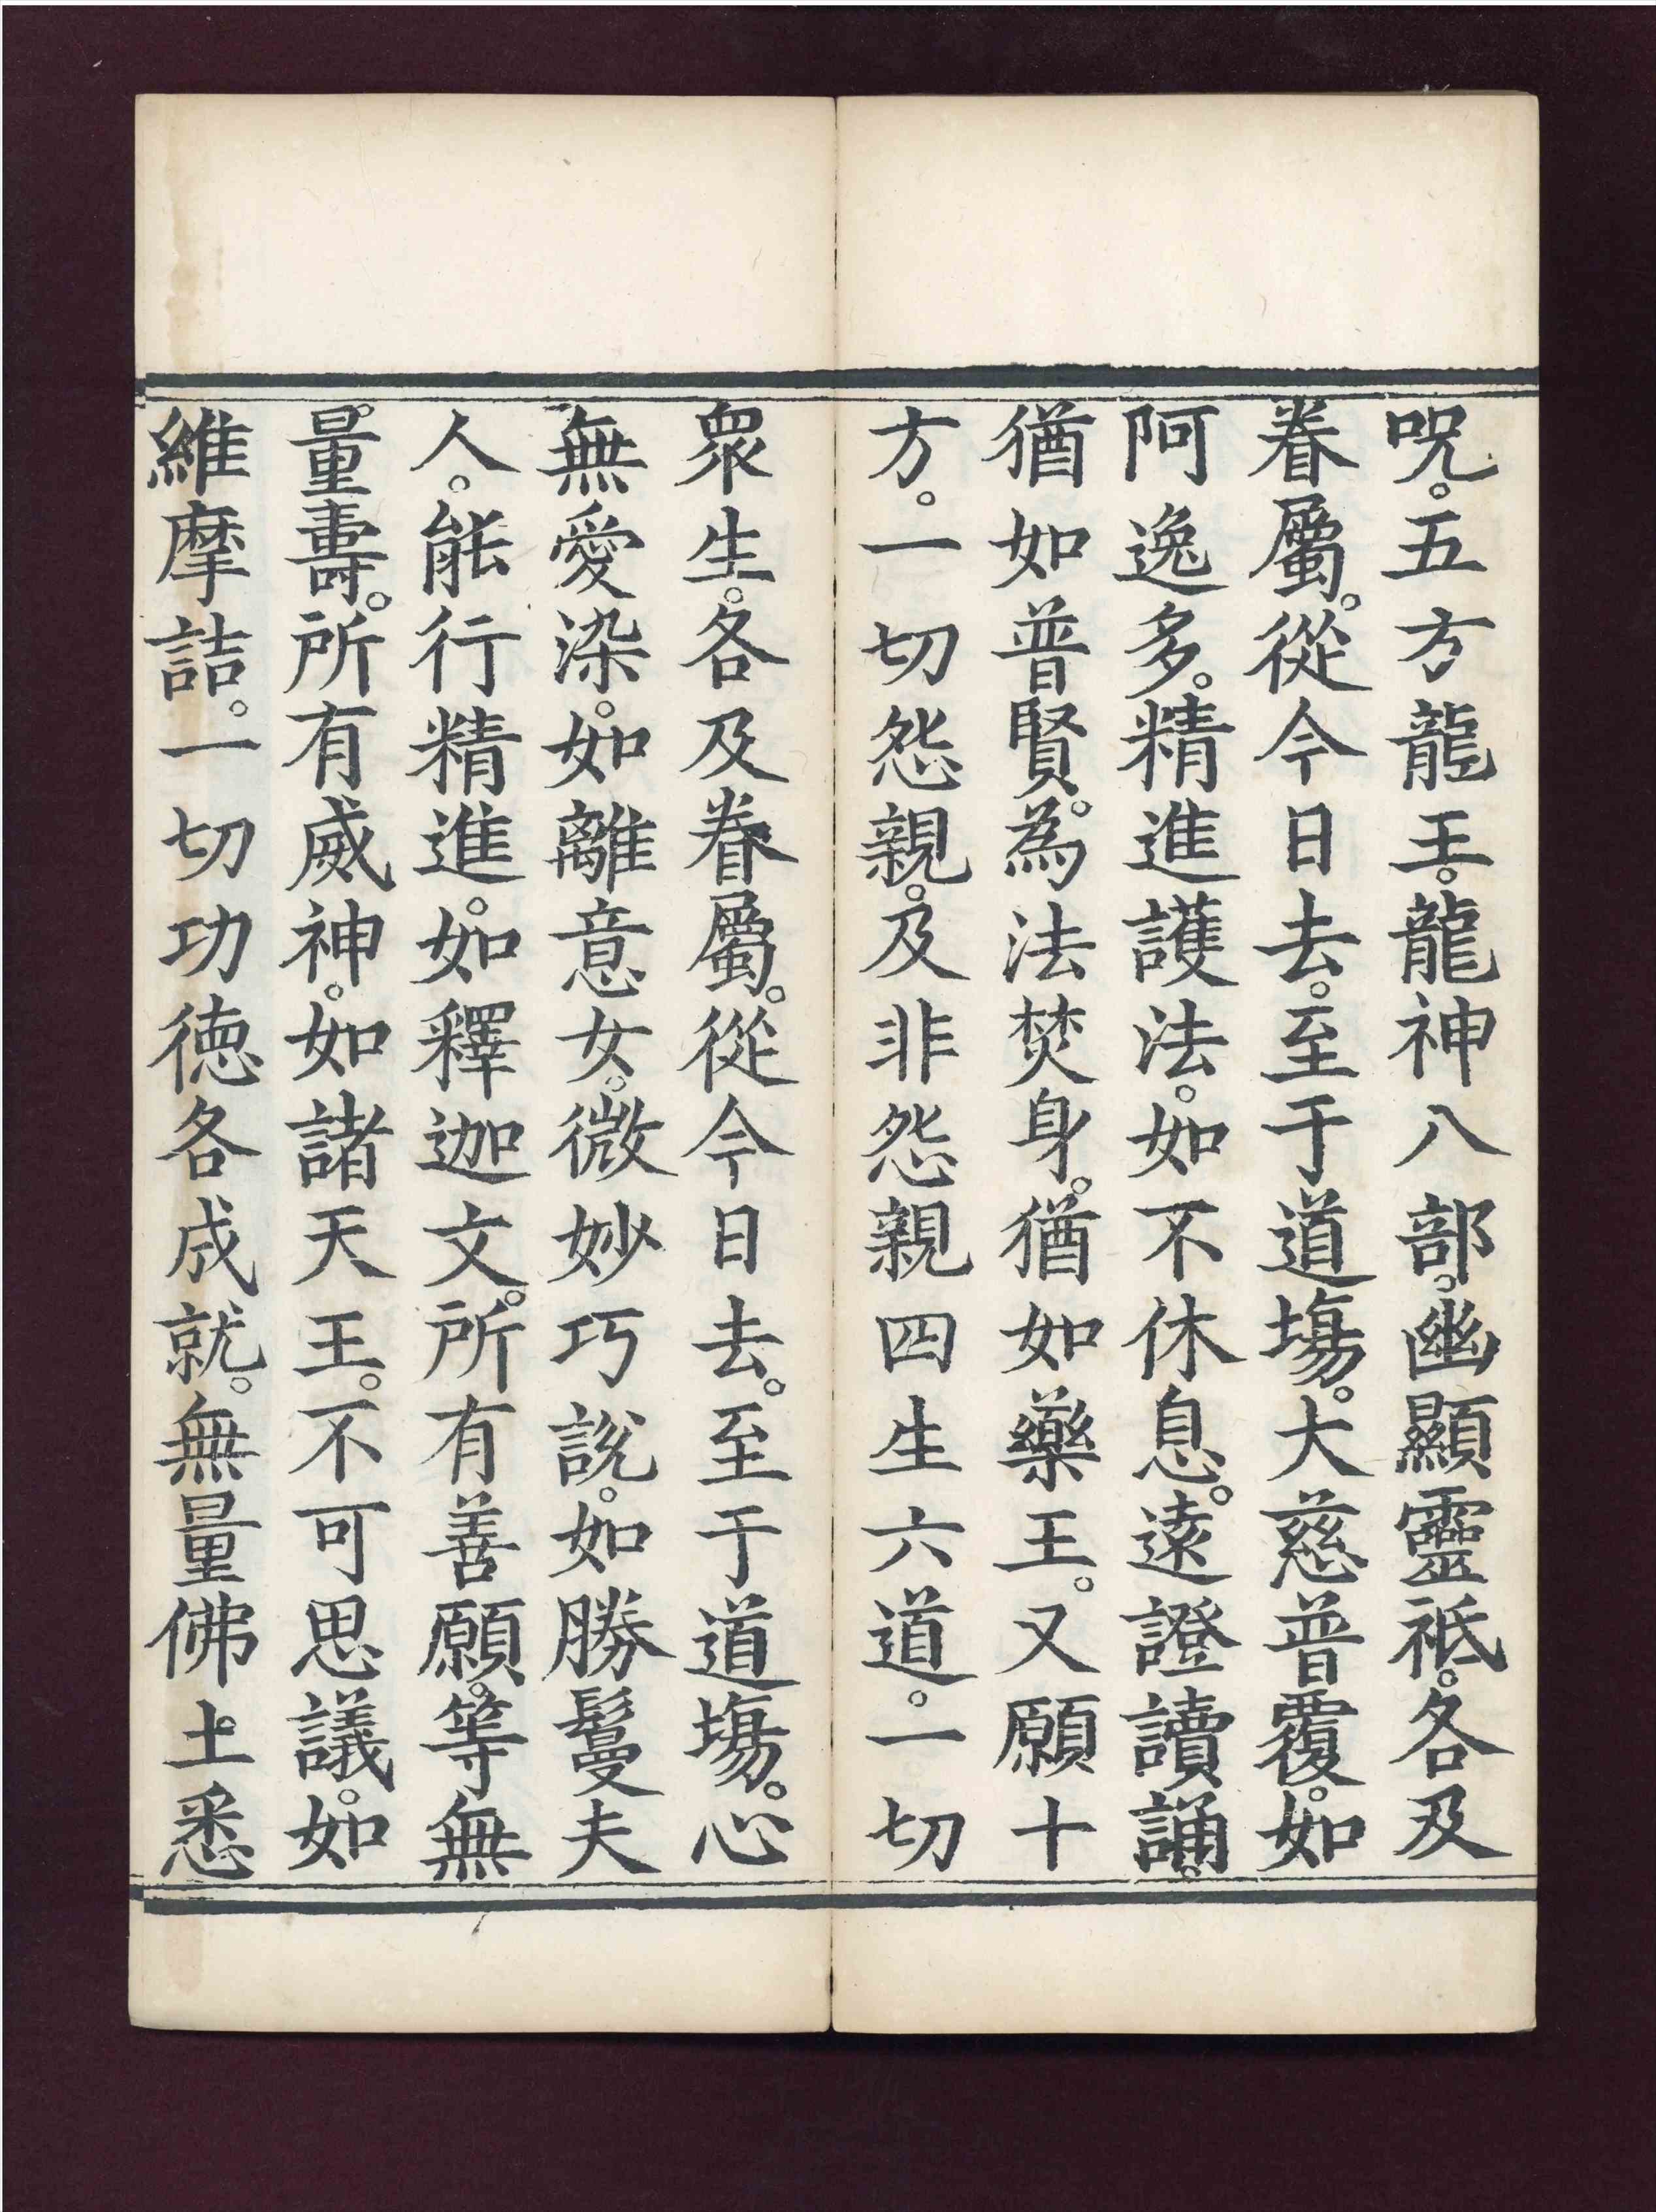 呪。五方龍王。龍神八部。幽顯靈祇。各及
眷屬。從今日去。至于道塲。大慈普覆。如
阿逸多。精進護法。如不休息。遠證讀誦。
猶如普賢。為法焚身。猶如藥王。又願十
方。一切怨親。及非怨親四生六道。一切
衆生。各及眷屬。從今日去。至于道塲。心
無愛染。如離意女。微妙巧說。如勝鬘夫
人。能行精進。如釋迦文。所有善願。等無
量壽。所有威神。如諸天王。不可思議。如
維摩詰。一切功徳各成就。無量佛土悉